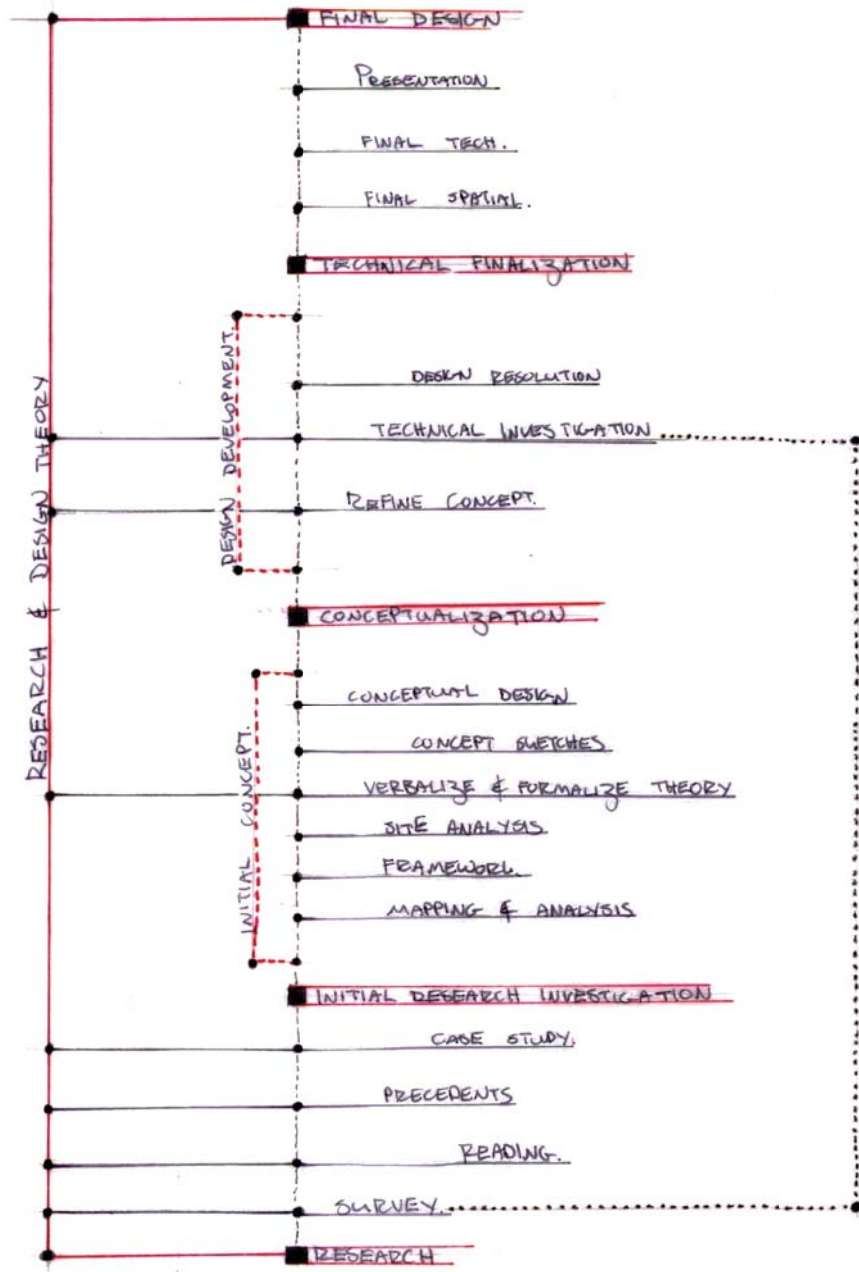 FINAL DESIGN
PRESENTATION
FINAL TECH.
FINAL SPATIAL.
TECHNICAL FINALIZATION
DESIGN DEVELOPMENT.
DESIGN RESOLUTION
TECHNICAL INVESTIGATION
REFINE CONCEPT.
RESEARCH & DESIGN THEORY
CONCEPTUALIZATION
INITIAL CONCEPT.
CONCEPTUAL DESIGN
CONCEPT SKETCHES
VERBALIZE & FORMALIZE THEORY
SITE ANALYSIS
FRAMEWORK.
MAPPING & ANALYSIS
INITIAL DESEARCH INVESTIGATION
CASE STUDY.
PRECEDENTS
READING.
SURVEY.
RESEARCH